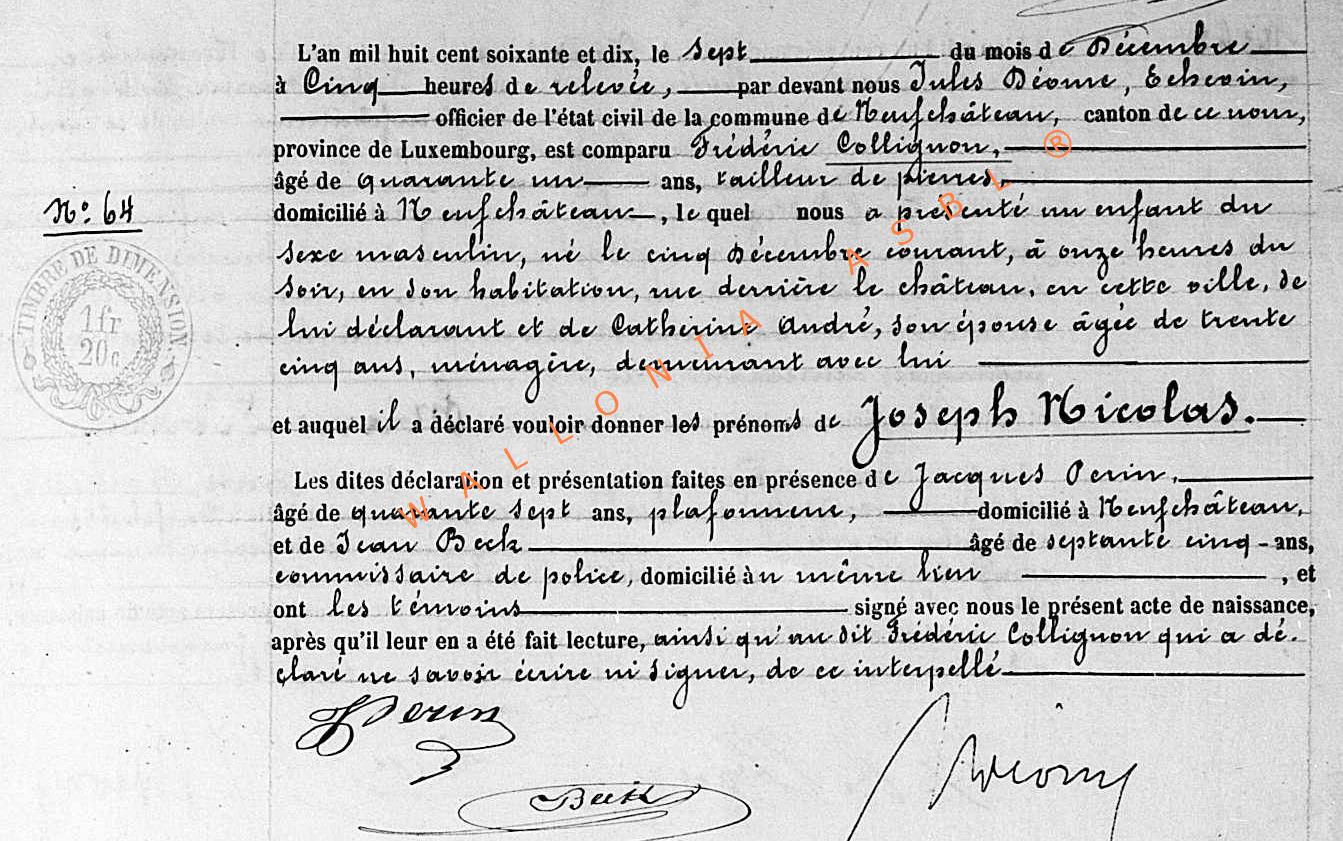 L'an mil huit cent soixante et dix, le sept du mois de Décembre
à Cinq heures de relevée, par devant nous Jules Déome, Echevin,
officier de l'état civil de la commune de Neufchâteau, canton de ce nom,
province de Luxembourg, est comparu Frédéric Collignon,
âgé de quarante un ans, tailleur de pierres,
N° 64
domicilié à Neufchâteau, le quel nous a présenté un enfant du
sexe masculin, né le cinq Décembre courant, à onze heures du
soir, en son habitation, rue derrière le château, en cette ville, de
lui déclarant et de Catherine André, son épouse âgée de trente
cinq ans, ménagère, demeurant avec lui
TIMBRE DE DIMENSION
1 fr
20 c
et auquel il a déclaré vouloir donner les prénoms de Joseph Nicolas.
Les dites déclaration et présentation faites en présence de Jacques Perin,
âgé de quarante sept ans, plafonneur, domicilié à Neufchâteau,
et de Jean Beck âgé de septante cinq ans,
commissaire de police, domicilié au même lieu , et
ont les témoins signé avec nous le présent acte de naissance,
après qu'il leur en a été fait lecture, ainsi qu'au dit Frédéric Collignon qui a dé-
claré ne savoir écrire ni signer, de ce interpellé
JPerin
Beck
WALLONIA ASBL ®